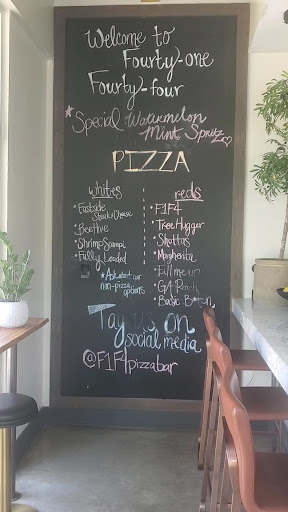 Welcome to
Fourty-one
Fourty-four
Special Watermelon
Mint Spritz
PIZZA
whites
• Eastside
Steak & Cheese
• BeeHive
• Shrimp Scampi
• Fully Loaded
* Ask about our
non-pizza
options
reds
• F1F4
• Tree Hugger
• Shottas
• Margherita
• Full meun
• GA Peach
• Basic B
Tag us on
social media
@F1F4pizzabar